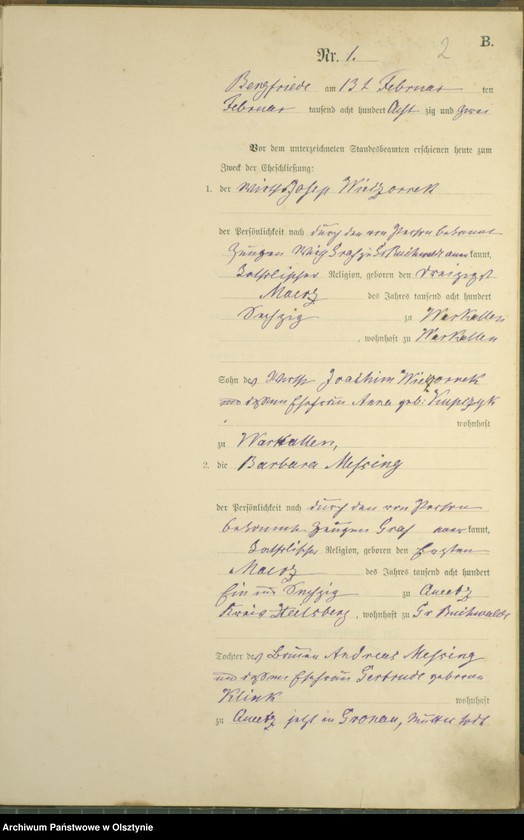 B.
Nr. 1.
2
Bergfriede am 13t Februar ten
Februar tausend acht hundert Acht zig und zwei
Vor dem unterzeichneten Standesbeamten erschienen heute zum
Zweck der Eheschließung:
1. der Wirth Josep Wieczorrek
der Persönlichkeit nach durch den von Person bekannt
Zeugen Graf Gr Buchwalde aner kannt,
Katholischer Religion, geboren den dreizigst
Maerz des Jahres tausend acht hundert
Sechzig zu Warkallen
, wohnhaft zu Warkallen
Sohn des Wirth Joachim Wieczorrek
und dessen Ehefrau Anna geb:
wohnhaft
zu Warkallen,
2. die Barbara Messing
der Persönlichkeit nach durch den von Person
bekannte Zeugen Graf aner kannt,
Katholischer Religion, geboren den Ersten
Maerz des Jahres tausend acht hundert
Ein und Sechzig zu Queetz
Kreis Heilsberg, wohnhaft zu Gr Buchwalde
Tochter des Andreas Messing
und dessen Ehefrau Gertrude geboren
Klink wohnhaft
zu Queetz jetzt in Gronau, Mutter todt
Archiwum Państwowe w Olsztynie